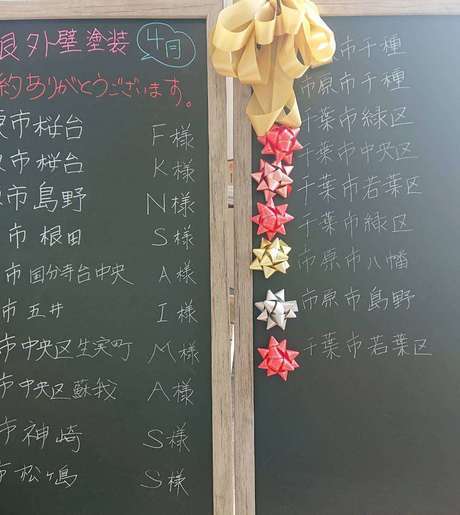 良外壁塗装 4月
約ありがとうございます。
原市桜台 F様
原市桜台 K様
原市島野 N様
市根田 S様
市国分寺台中央 A様
市五井 I様
市中央区生実町 M様
市中央区蘇我 A様
市神崎 S様
市松ヶ島 S様
原市千種
市原市千種
千葉市緑区
千葉市中央区
千葉市若葉区
千葉市緑区
市原市八幡
市原市島野
千葉市若葉区